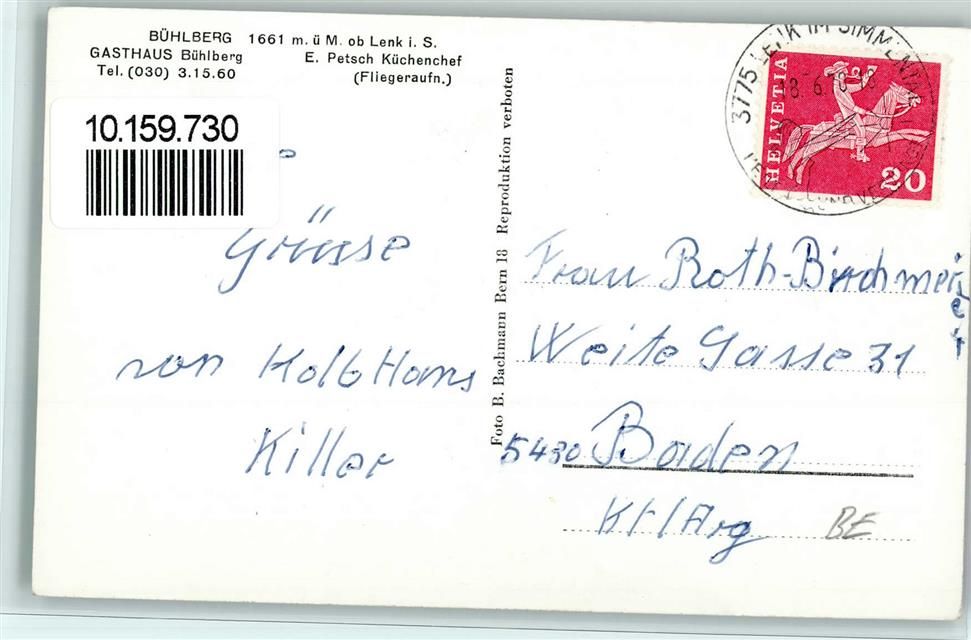 BÜHLBERG 1661 m. ü M. ob Lenk i. S.
GASTHAUS Bühlberg E. Petsch Küchenchef
Tel. (030) 3.15.60 (Fliegeraufn.)
10.159.730
Grüsse
von Kolb Hans
Killer
Foto B. Bachmann Bern 18 Reproduktion verboten
3775 LENK IM SIMMENTAL
HELVETIA
20
Frau Roth-Birchmeier
Weite Gasse 31
5430 Baden
Kt/Arg
BE